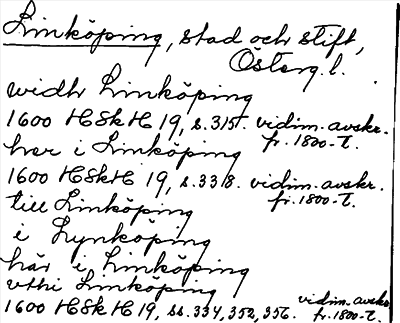 Linköping, stad och stift,
Österg.l.
widh Linköping
1600 HSkH 19, s. 315. vidim. avskr.
fr. 1800-t.
her i Linköping
1600 HSkH 19, s. 338. vidim. avskr.
fr. 1800-t.
till Linköping
i Lynköping
här i Linköping
vthi Linköping
1600 HSkH 19, ss. 334, 352, 356. vidim. avskr.
fr. 1800-t.